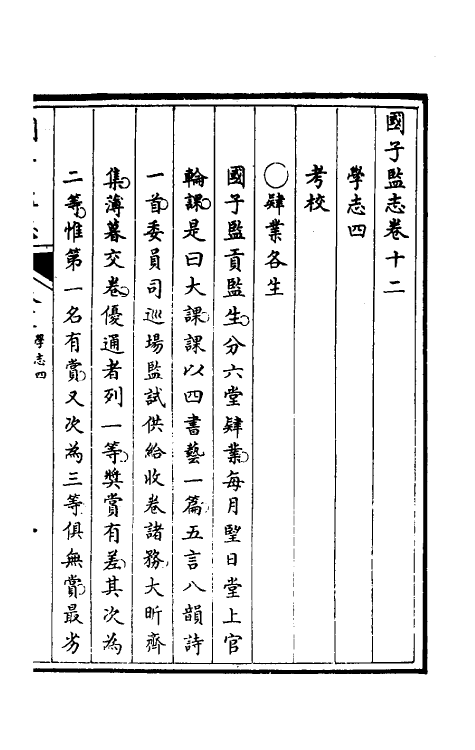 國子監志卷十二
學志四
考校
○肄業各生
國子監貢監生分六堂肄業每月望日堂上官
輪課是曰大課課以四書藝一篇五言八韻詩
一首委員司巡場監試供給收卷諸務大昕齊
集薄暮交卷優通者列一等獎賞有差其次為
二等惟第一名有賞又次為三等俱無賞最劣
學志四